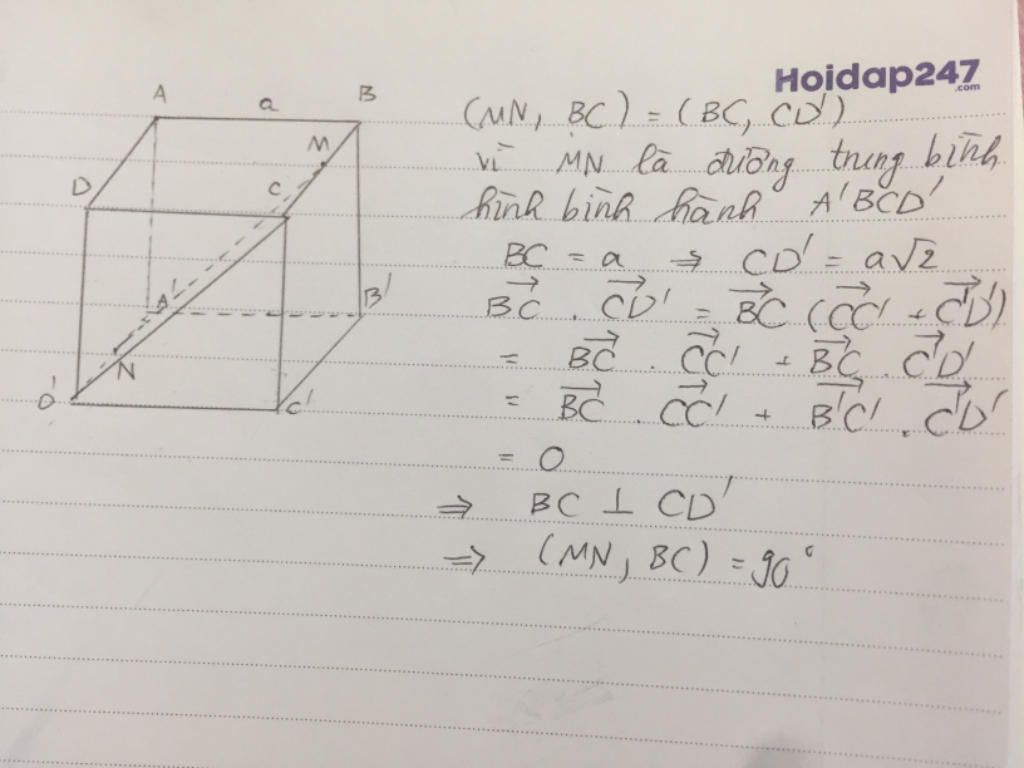 Hoidap247
.com
A a B
(MN, BC) = (BC, CD')
M
vì MN là đường trung bình
D C
hình bình hành A'BCD'
BC = a ⇒ CD' = a√2
A' B'
BC→ . CD'→ = BC→ (CC'→ + C'D'→)
N
= BC→ . CC'→ + BC→ . C'D'→
D' C'
= BC→ . CC'→ + B'C'→ . C'D'→
= 0
⇒ BC ⊥ CD'
⇒ (MN, BC) = 90°